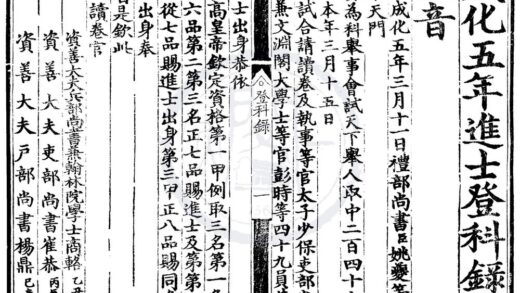 化五年進士登科錄
音
成化五年三月十一日禮部尚書臣姚夔等
天門
為科舉事會試天下舉人取中二百四十
本年三月十五日
試合請讀卷及執事等官太子少保吏部
兼文淵閣大學士等官彭時等四十九員
登科錄
士出身恭依
高皇帝欽定資格第一甲例取三名第一名
六品第二第三名正七品賜進士及第第
從七品賜進士出身第三甲正八品賜同
出身奉
是欽此
讀卷官
資善大夫兵部尚書兼翰林院學士商輅
資善大夫吏部尚書崔恭
資善大夫戶部尚書楊鼎